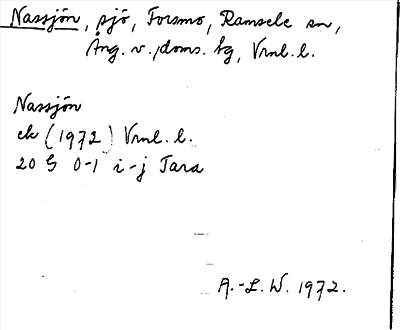 Nassjön, sjö, Forsmo, Ramsele sn,
Ång. v. doms. tg, Vrml. l.
Nassjön
ek (1972) Vrml. l.
20 G 0-1 i-j Tara
A.-L. W. 1972.